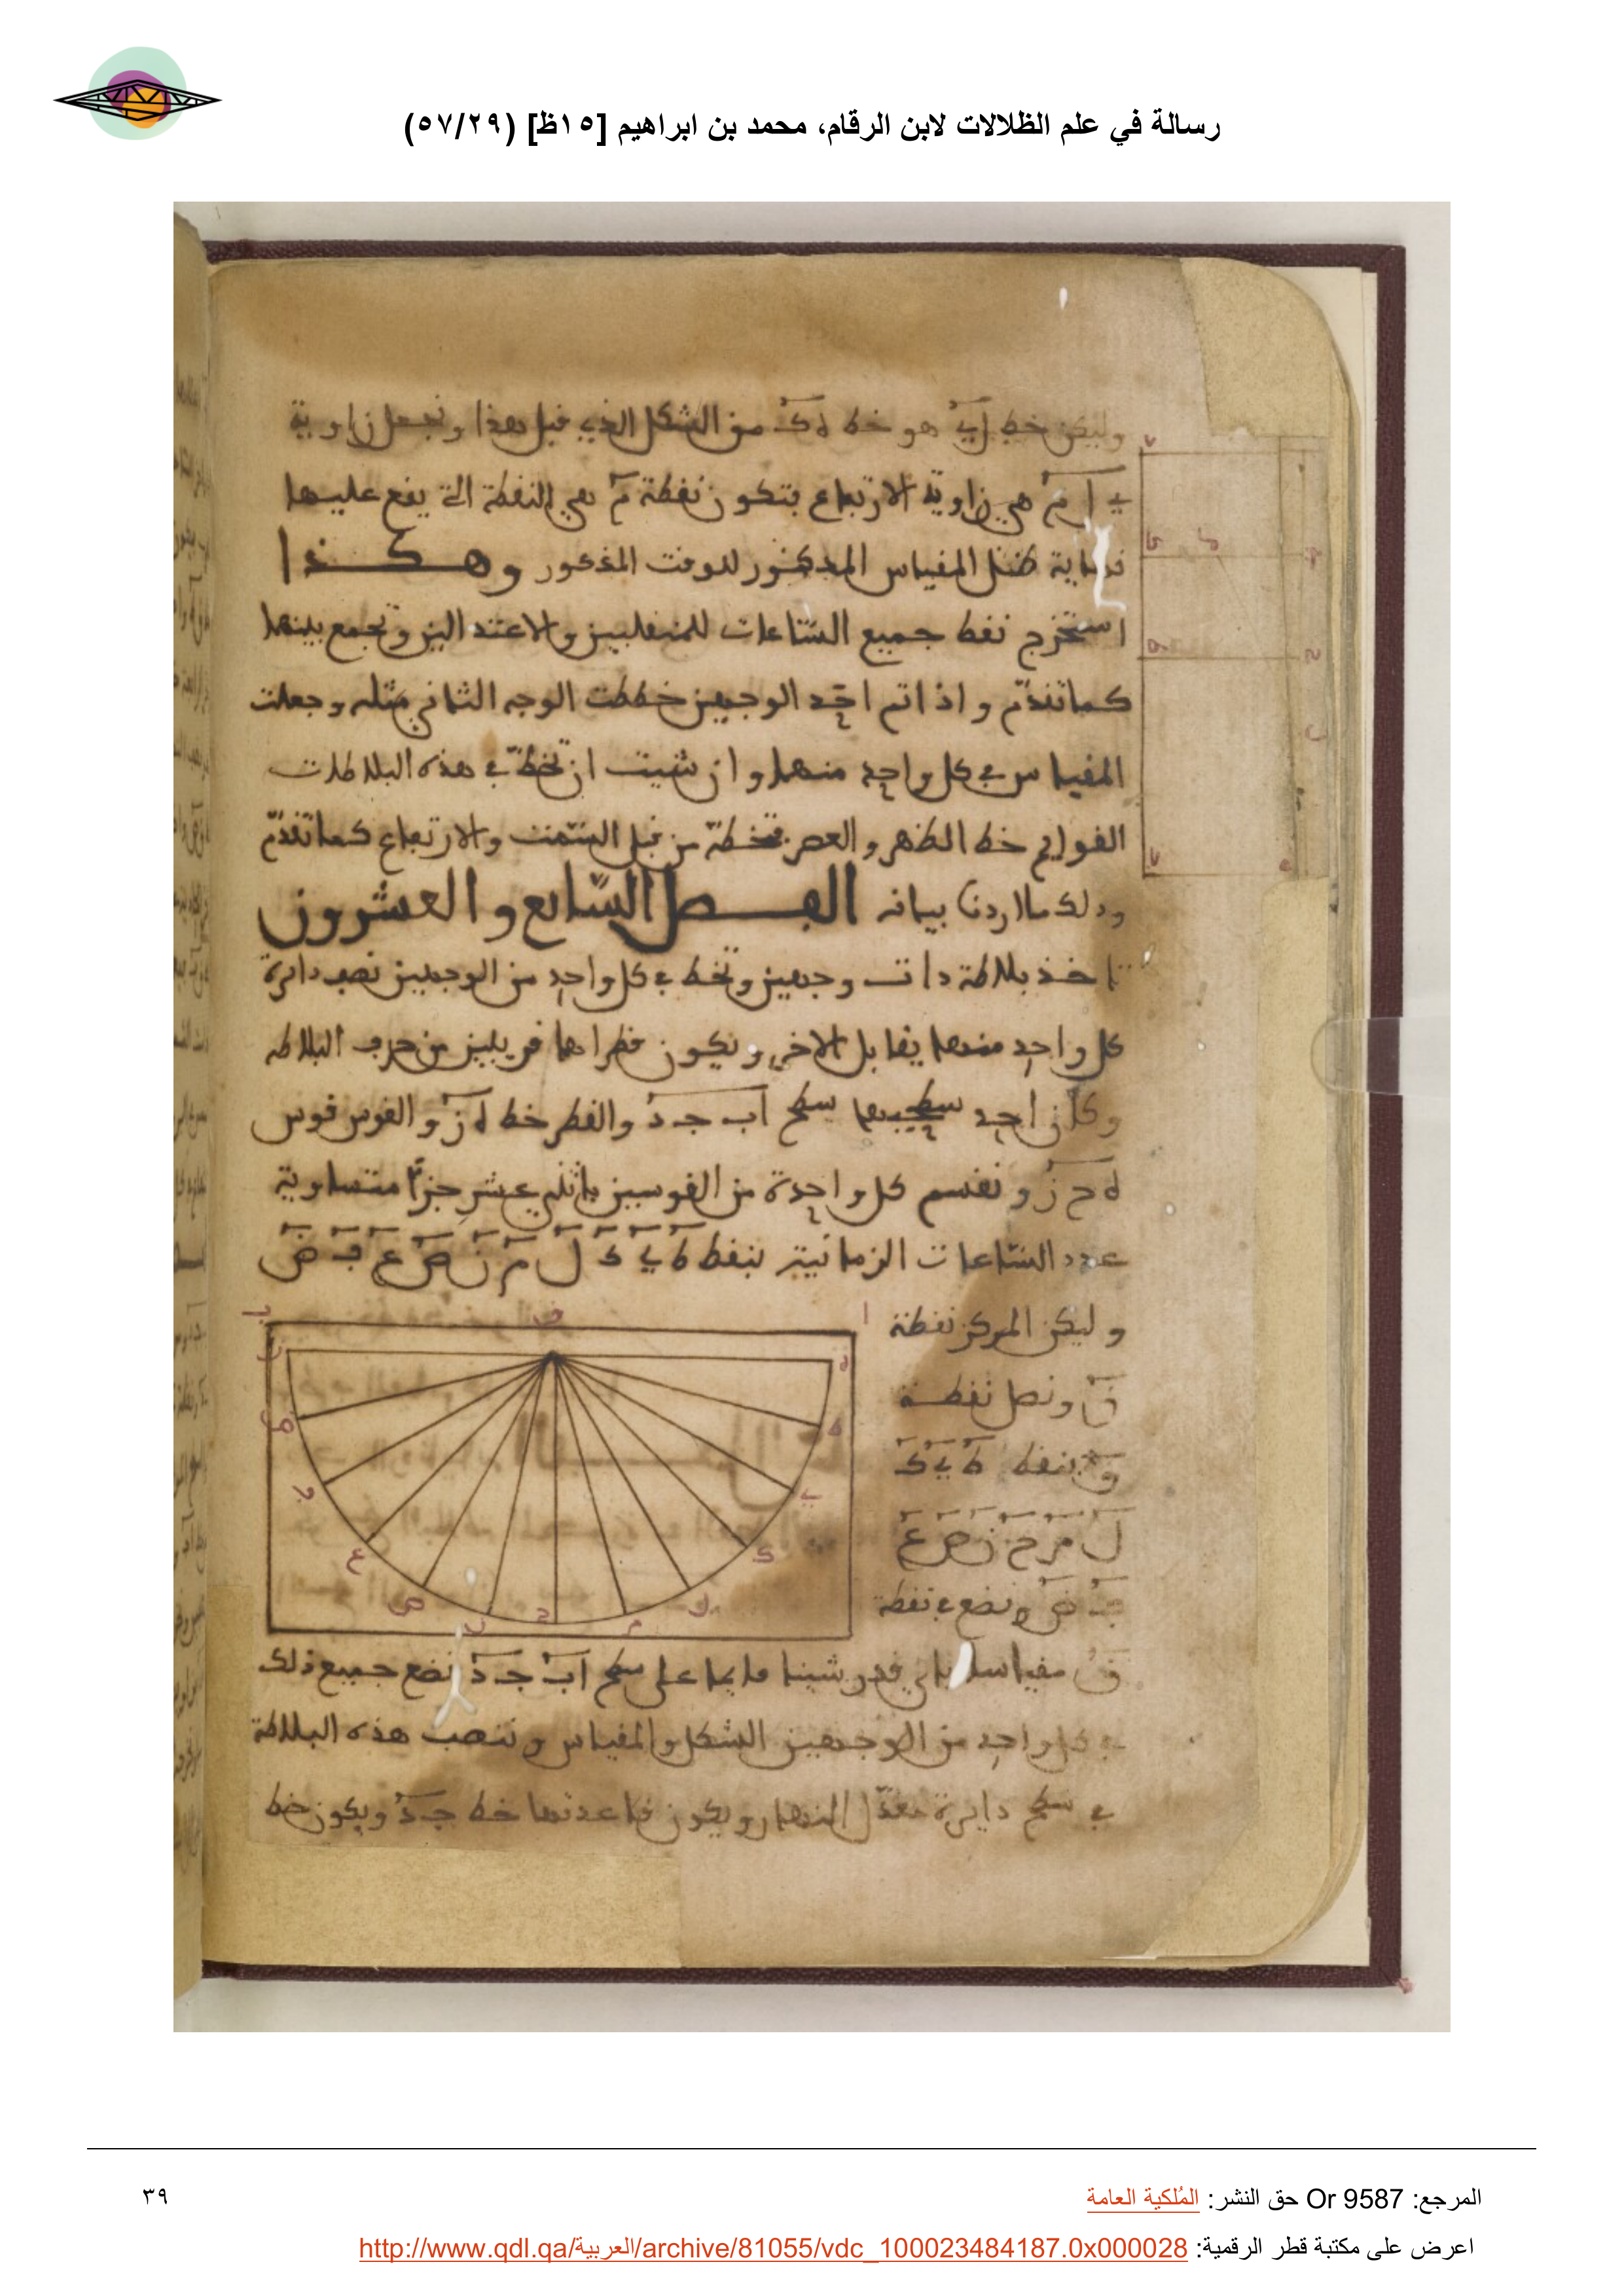 رسالة في علم الظلالات لابن الرقام، محمد بن ابراهيم [١٥ظ] (٥٧/٢٩)
وليكن خط اب هو خط ه ك من الشكل الذي قبل هذا ونجعل زاوية
ب ا م هي زاوية الارتفاع فتكون نقطة م هي النقطة التي يقع عليها
نهاية ظل المقياس المذكور للوقت المذكور وهكذا
استخرج نقط جميع الساعات للمنقلبين والاعتدالين وتجمع بينها
كما تقدم واذا تم احد الوجهين خططت الوجه الثاني مثله وجعلت
المقياس في كل واحد منهما وان شيت ان تخط في هذه البلاطات
القوايم خط الظهر والعصر فتخطه من قبل السمت والارتفاع كما تقدم
وذلك ما اردنا بيانه الفصل السابع والعشرون
تاخذ بلاطة ذات وجهين وتخط في كل واحد من الوجهين نصف دايرة
كل واحد منهما يقابل الاخر ويكون قطراهما قريبين من حرف البلاطة
سطح اب جد والقطر خط ه ز والقوس قوس
ه ح ز ونقسم كل واحدة من القوسين باثني عشر جزءا متساوية
عدد الساعات الزمانية بنقط ط ي ك ل م ن ص ع ف ض
وليكن المركز نقطة
ق ونصل نقطة
ق بنقط ط ي ك
ل م ح ن ص ع
ف ض ونضع في نقطة
ق مقياسا باي قدر شينا قايما على سطح اب جد نضع جميع ذلك
في كل واحد من الوجهين الشكل والمقياس وننصب هذه البلاطة
في سطح دايرة معدل النهار ويكون قاعدتها خط جد ويكون خط
المرجع: Or 9587 حق النشر: المُلكية العامة
٣٩
اعرض على مكتبة قطر الرقمية: http://www.qdl.qa/العربية/archive/81055/vdc_100023484187.0x000028